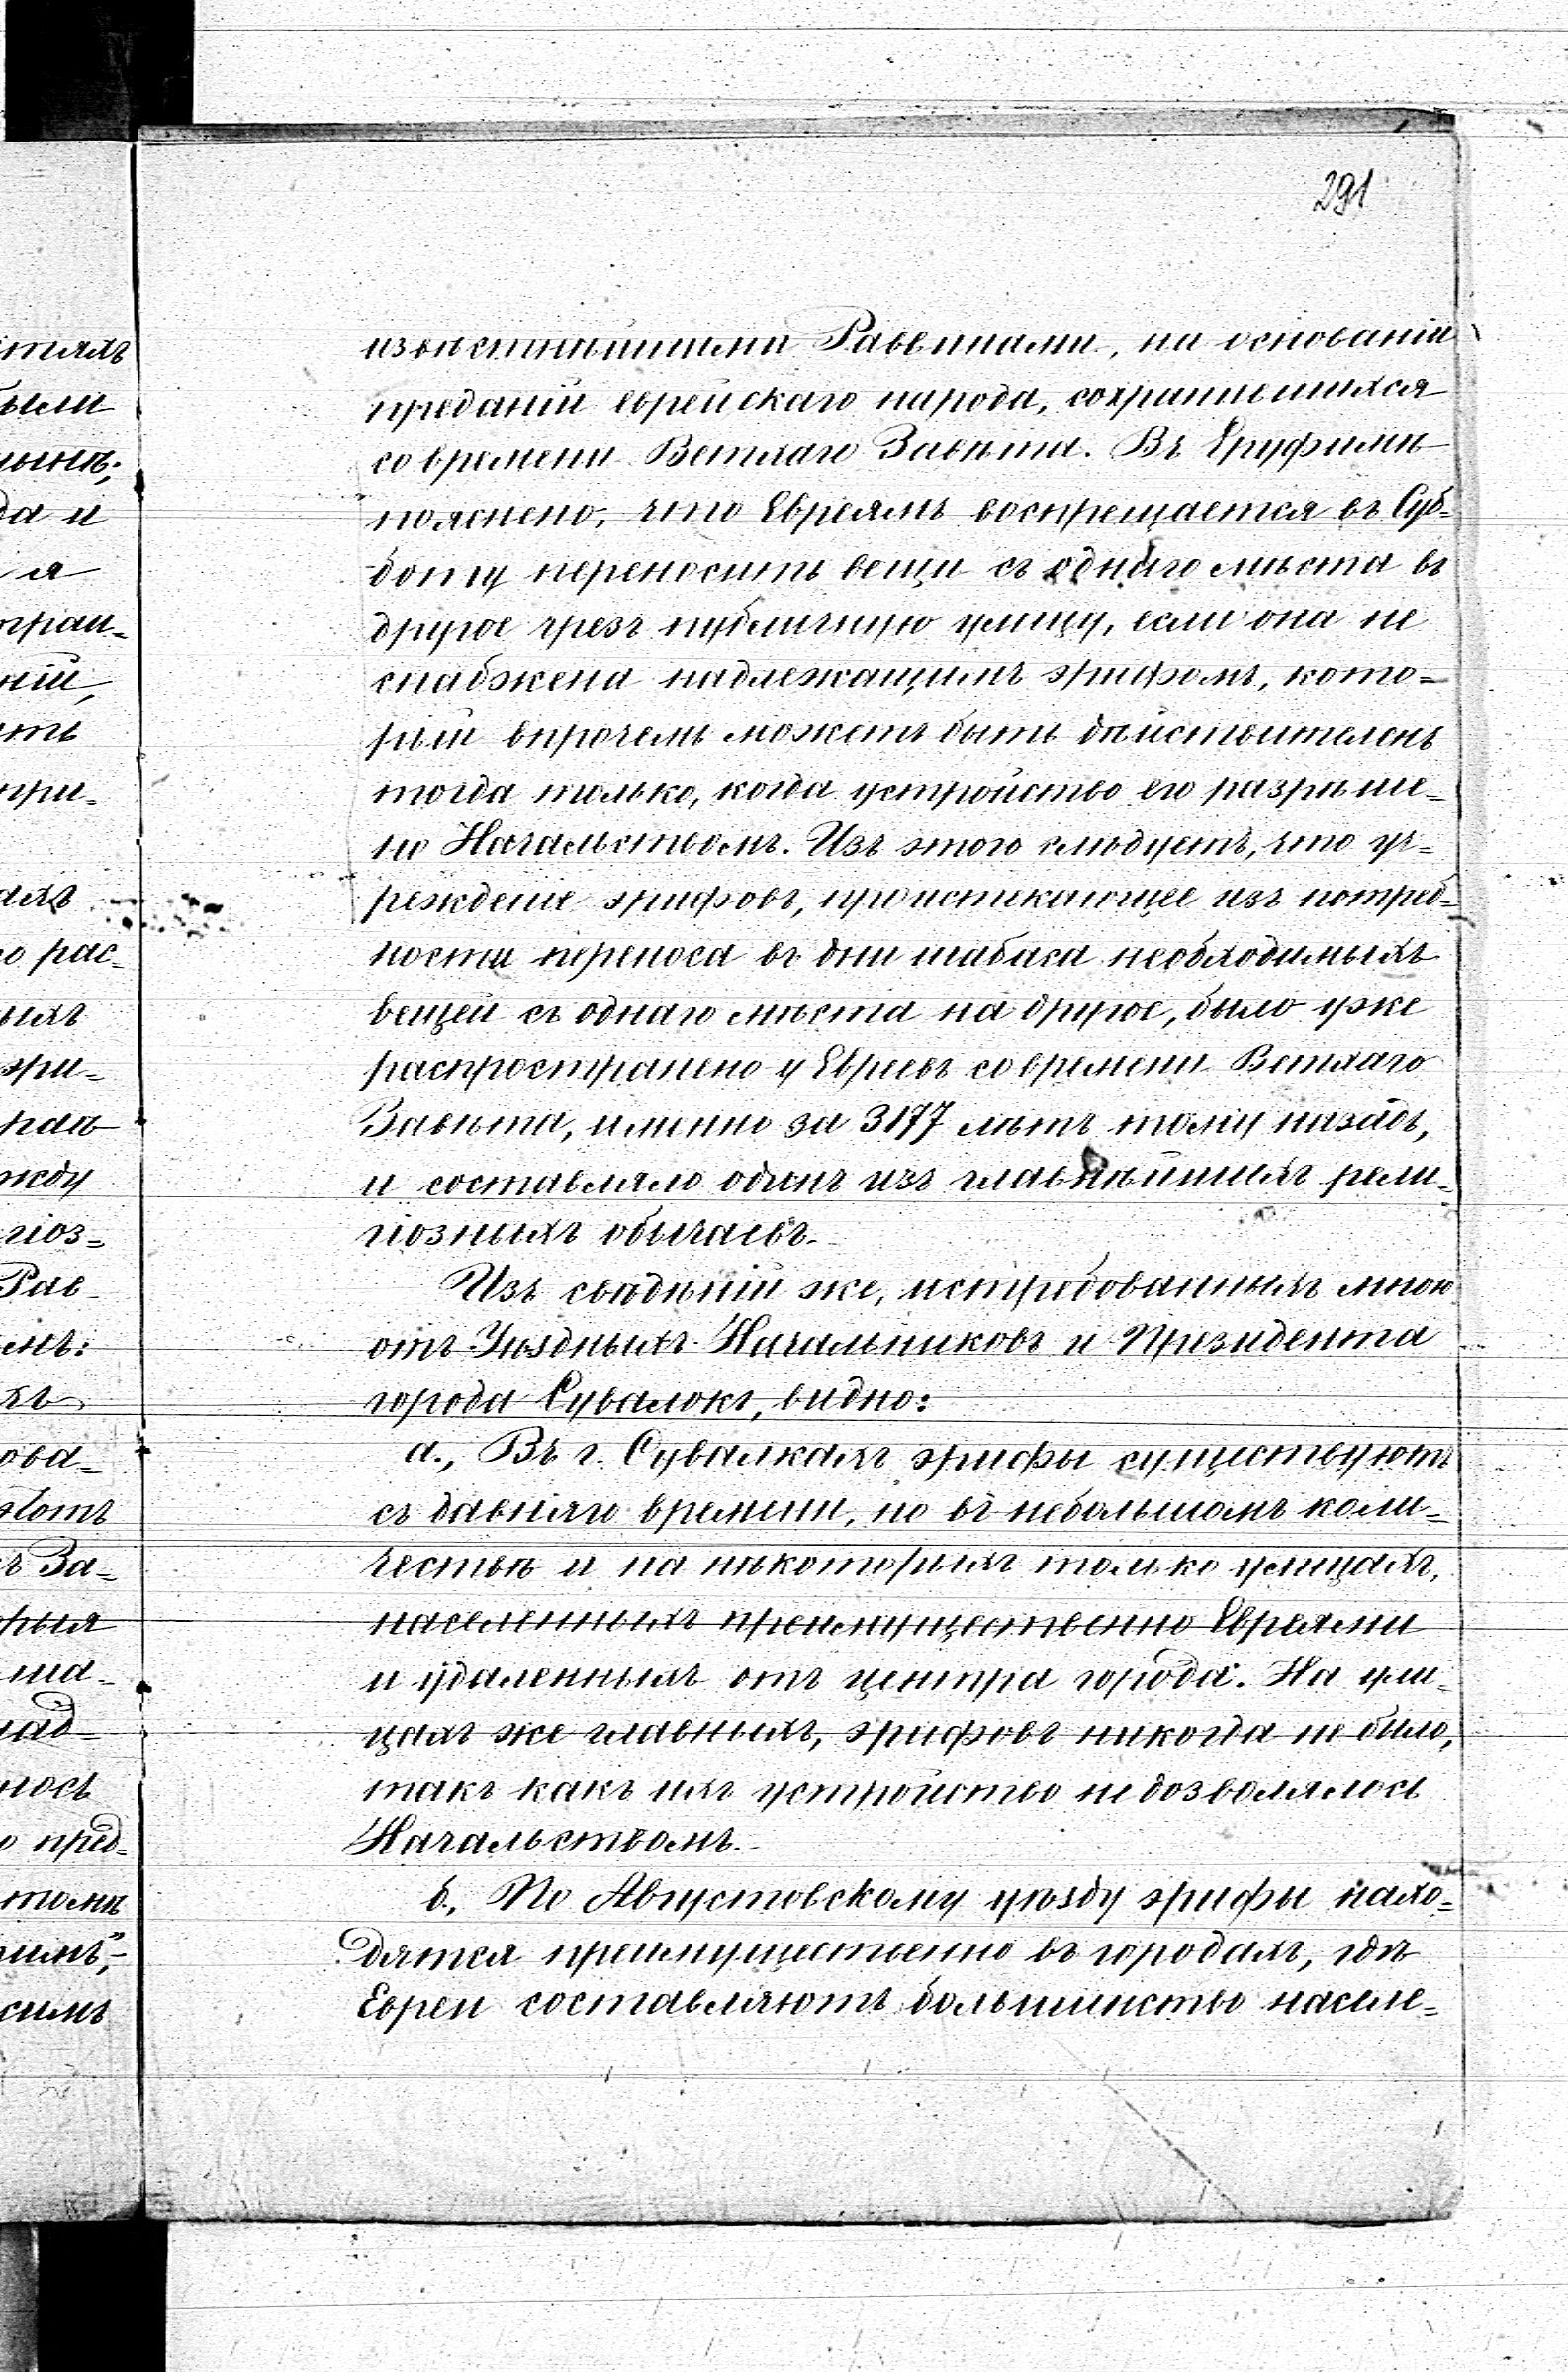 291
извѣстнѣйшими Раввинами, на основаніи
преданій еврейскаго народа, сохранившихся
со времени Ветхаго Завѣта. Въ Еруфимѣ
пояснено, что Евреямъ воспрещается въ Суб=
боту переносить вещи съ однаго мѣста въ
другое чрезъ публичную улицу, если она не
снабжена надлежащимъ эрифомъ, кото=
рый впрочемъ можетъ быть дѣйствителенъ
тогда только, когда устройство его разрѣше=
но Начальствомъ. Изъ этого слѣдуетъ, что уч=
режденіе эрифовъ, проистекающее изъ потреб=
ности переноса въ дни шабаса необходимыхъ
вещей съ однаго мѣста на другое, было уже
распространено у Евреевъ со времени Ветхаго
Завѣта, именно за 3177 лѣтъ тому назадъ,
и составляло одинъ изъ главнѣйшихъ рели=
гіозныхъ обычаевъ.
Изъ свѣдѣній же, истребованныхъ мною
отъ Уѣздныхъ Начальниковъ и Президента
города Сувалокъ, видно:
а., Въ г. Сувалкахъ эрифы существуютъ
съ давняго времени, но въ небольшомъ коли=
чествѣ и на нѣкоторыхъ только улицахъ,
населенныхъ преимущественно Евреями
и удаленныхъ отъ центра города. На ули=
цахъ же главныхъ, эрифовъ никогда не было,
такъ какъ ихъ устройство не дозволялось
Начальствомъ.
б., По Августовскому уѣзду эрифы нахо=
дятся преимущественно въ городахъ, гдѣ
Евреи составляютъ большинство населе=